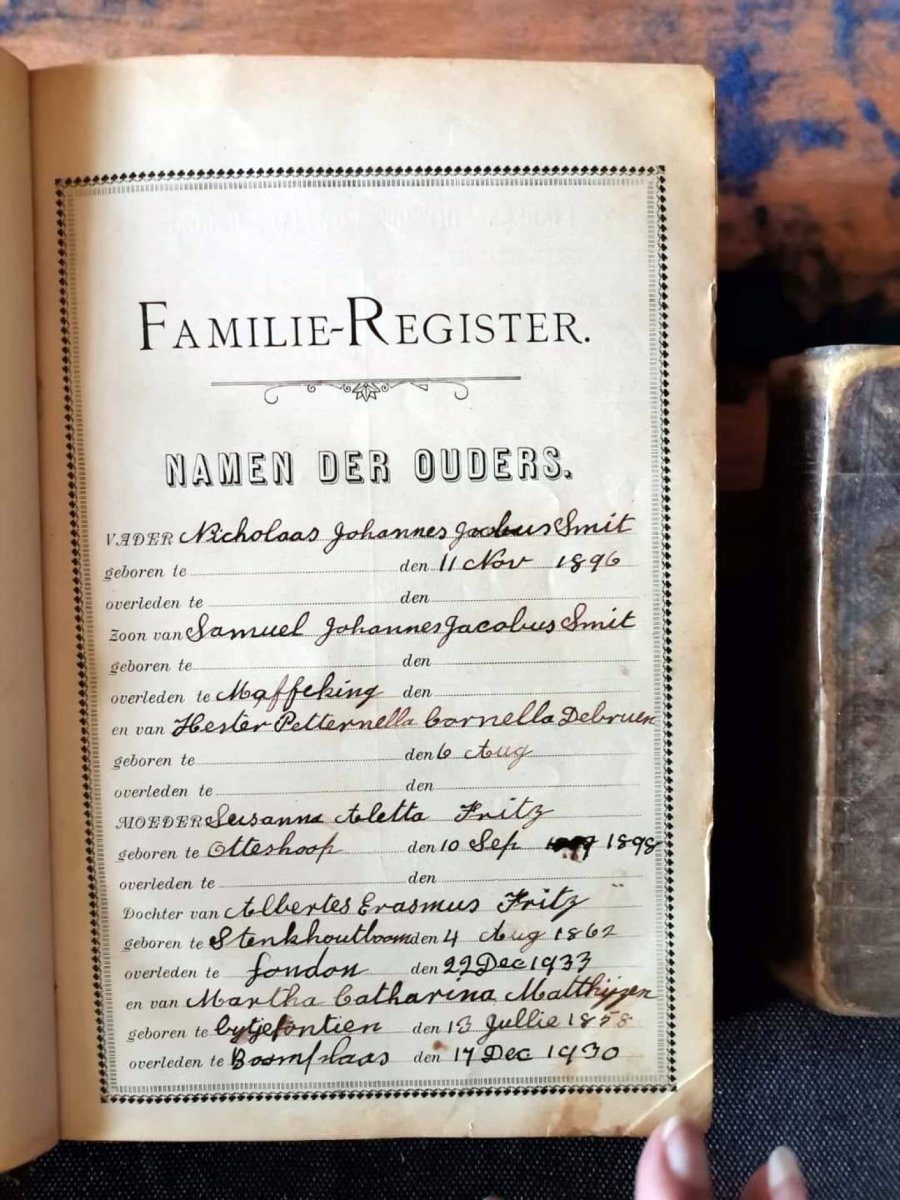 FAMILIE-REGISTER.
NAMEN DER OUDERS.
VADER Nicholaas Johannes Jacobus Smit
geboren te den 11 Nov 1896
overleden te den
Zoon van Samuel Johannes Jacobus Smit
geboren te den
overleden te Maffeking den
en van Hester Petternella Cornella Debruen
geboren te den 6 Aug
overleden te den
MOEDER Susanna Aletta Fritz
geboren te Otteshoop den 10 Sep 1898
overleden te den
Dochter van Albertes Erasmus Fritz
geboren te Stenkhoutboom den 4 Aug 1862
overleden te London den 22 Dec 1933
en van Martha Catharina Matthijzen
geboren te den 13 Jullie 1858
overleden te Boomplaas den 17 Dec 1930